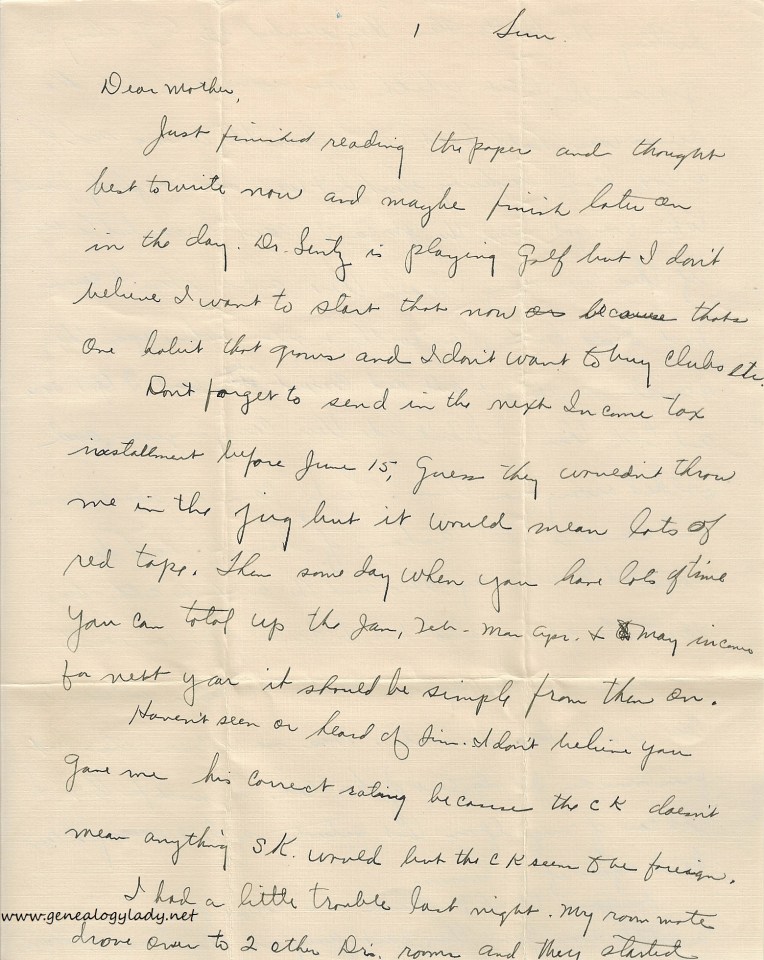 1 Sun.
Dear Mother,
Just finished reading the paper and thought
best to write now and maybe finish later on
in the day. Dr. Lentz is playing Golf but I don't
believe I want to start that now or because thats
one habit that grows and I don't want to buy clubs etc.
Don't forget to send in the next Income tax
installment before June 15, Guess they wouldn't throw
me in the jug but it would mean lots of
red tape. Then some day when you have lots of time
you can total up the Jan, Feb - Mar Apr. + May income
for next year it should be simple from then on.
Haven't seen or heard of Jim. I don't believe you
gave me his correct rating because the CK doesn't
mean anything SK. would but the CK seem to be foreign.
I had a little trouble last night. My room mate
www.genealogylady.net
drove over to 2 other Drs. rooms and they started